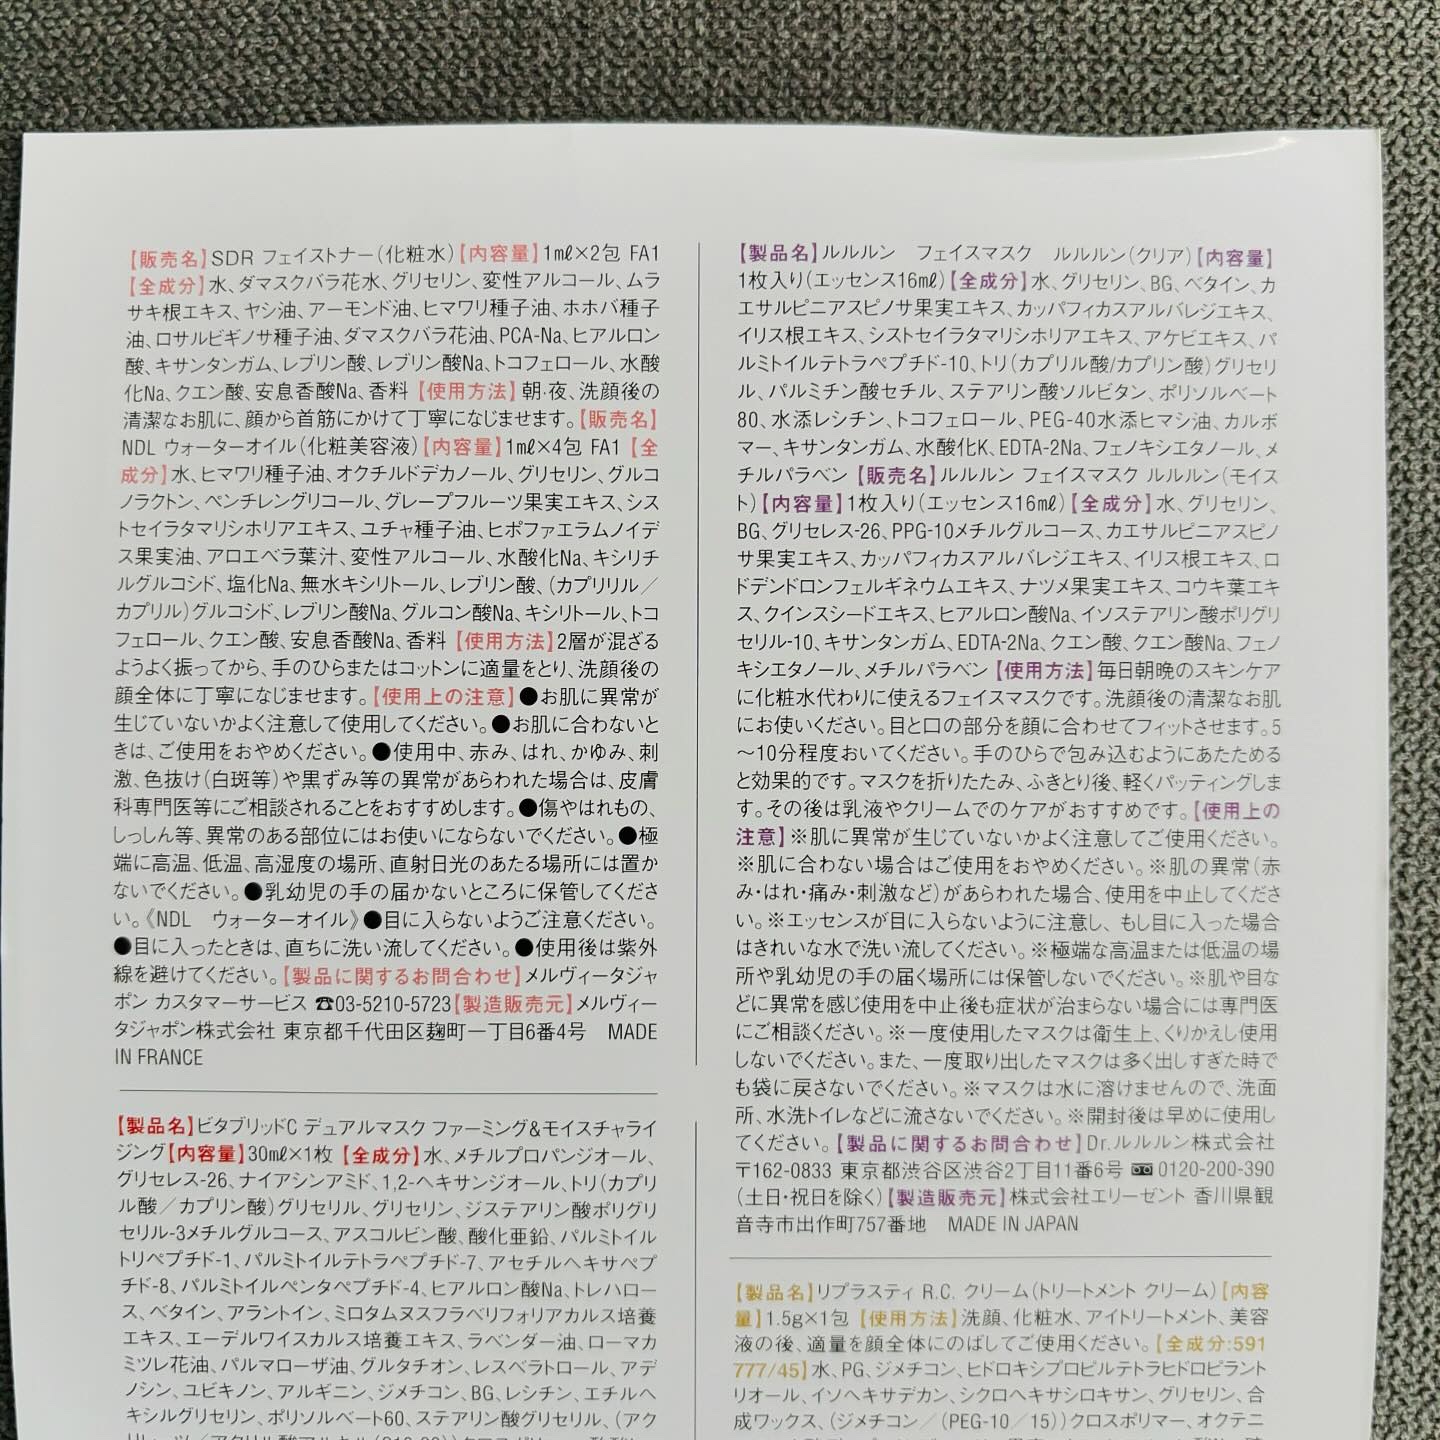 【販売名】SDR フェイストナー(化粧水)【内容量】1mℓ×2包 FA1
【全成分】水、ダマスクバラ花水、グリセリン、変性アルコール、ムラ
サキ根エキス、ヤシ油、アーモンド油、ヒマワリ種子油、ホホバ種子
油、ロサルビギノサ種子油、ダマスクバラ花油、PCA-Na、ヒアルロン
酸、キサンタンガム、レブリン酸、レブリン酸Na、トコフェロール、水酸
化Na、クエン酸、安息香酸Na、香料【使用方法】朝・夜、洗顔後の
清潔なお肌に、顔から首筋にかけて丁寧になじませます。【販売名】
NDL ウォーターオイル(化粧美容液)【内容量】1mℓ×4包 FA1【全
成分】水、ヒマワリ種子油、オクチルドデカノール、グリセリン、グルコ
ノラクトン、ペンチレングリコール、グレープフルーツ果実エキス、シス
トセイラタマリシホリアエキス、ユチャ種子油、ヒポファエラムノイデ
ス果実油、アロエベラ葉汁、変性アルコール、水酸化Na、キシリチ
ルグルコシド、塩化Na、無水キシリトール、レブリン酸、(カプリリル/
カプリル)グルコシド、レブリン酸Na、グルコン酸Na、キシリトール、トコ
フェロール、クエン酸、安息香酸Na、香料【使用方法】2層が混ざる
ようよく振ってから、手のひらまたはコットンに適量をとり、洗顔後の
顔全体に丁寧になじませます。【使用上の注意】●お肌に異常が
生じていないかよく注意して使用してください。●お肌に合わないと
きは、ご使用をおやめください。●使用中、赤み、はれ、かゆみ、刺
激、色抜け(白斑等)や黒ずみ等の異常があらわれた場合は、皮膚
科専門医等にご相談されることをおすすめします。●傷やはれもの、
しっしん等、異常のある部位にはお使いにならないでください。●極
端に高温、低温、高湿度の場所、直射日光のあたる場所には置か
ないでください。●乳幼児の手の届かないところに保管してくださ
い。《NDL ウォーターオイル》●目に入らないようご注意ください。
●目に入ったときは、直ちに洗い流してください。●使用後は紫外
線を避けてください。【製品に関するお問合わせ】メルヴィータジャ
ポン カスタマーサービス ☎03-5210-5723【製造販売元】メルヴィー
タジャポン株式会社 東京都千代田区麹町一丁目6番4号 MADE
IN FRANCE
【製品名】ビタブリッドC デュアルマスク ファーミング&モイスチャライ
ジング【内容量】30mℓ×1枚【全成分】水、メチルプロパンジオール、
グリセレス-26、ナイアシンアミド、1,2-ヘキサンジオール、トリ(カプリ
ル酸/カプリン酸)グリセリル、グリセリン、ジステアリン酸ポリグリ
セリル-3メチルグルコース、アスコルビン酸、酸化亜鉛、パルミトイル
トリペプチド-1、パルミトイルテトラペプチド-7、アセチルヘキサペプ
チド-8、パルミトイルペンタペプチド-4、ヒアルロン酸Na、トレハロー
ス、ベタイン、アラントイン、ミロタムヌスフラベリフォリアカルス培養
エキス、エーデルワイスカルス培養エキス、ラベンダー油、ローマカ
ミツレ花油、パルマローザ油、グルタチオン、レスベラトロール、アデ
ノシン、ユビキノン、アルギニン、ジメチコン、BG、レシチン、エチルヘ
キシルグリセリン、ポリソルベート60、ステアリン酸グリセリル、(アク
【製品名】ルルルン フェイスマスク ルルルン(クリア)【内容量】
1枚入り(エッセンス16mℓ)【全成分】水、グリセリン、BG、ベタイン、カ
エサルピニアスピノサ果実エキス、カッパフィカスアルバレジエキス、
イリス根エキス、シストセイラタマリシホリアエキス、アケビエキス、パ
ルミトイルテトラペプチド-10、トリ(カプリル酸/カプリン酸)グリセリ
ル、パルミチン酸セチル、ステアリン酸ソルビタン、ポリソルベート
80、水添レシチン、トコフェロール、PEG-40水添ヒマシ油、カルボ
マー、キサンタンガム、水酸化K、EDTA-2Na、フェノキシエタノール、メ
チルパラベン【販売名】ルルルン フェイスマスク ルルルン(モイス
ト)【内容量】1枚入り(エッセンス16mℓ)【全成分】水、グリセリン、
BG、グリセレス-26、PPG-10メチルグルコース、カエサルピニアスピノ
サ果実エキス、カッパフィカスアルバレジエキス、イリス根エキス、ロ
ドデンドロンフェルギネウムエキス、ナツメ果実エキス、コウキ葉エキ
ス、クインスシードエキス、ヒアルロン酸Na、イソステアリン酸ポリグリ
セリル-10、キサンタンガム、EDTA-2Na、クエン酸、クエン酸Na、フェノ
キシエタノール、メチルパラベン【使用方法】毎日朝晩のスキンケア
に化粧水代わりに使えるフェイスマスクです。洗顔後の清潔なお肌
にお使いください。目と口の部分を顔に合わせてフィットさせます。5
～10分程度おいてください。手のひらで包み込むようにあたためる
と効果的です。マスクを折りたたみ、ふきとり後、軽くパッティングしま
す。その後は乳液やクリームでのケアがおすすめです。【使用上の
注意】※肌に異常が生じていないかよく注意してご使用ください。
※肌に合わない場合はご使用をおやめください。※肌の異常(赤
み・はれ・痛み・刺激など)があらわれた場合、使用を中止してくださ
い。※エッセンスが目に入らないように注意し、もし目に入った場合
はきれいな水で洗い流してください。※極端な高温または低温の場
所や乳幼児の手の届く場所には保管しないでください。※肌や目な
どに異常を感じ使用を中止後も症状が治まらない場合には専門医
にご相談ください。※一度使用したマスクは衛生上、くりかえし使用
しないでください。また、一度取り出したマスクは多く出しすぎた時で
も袋に戻さないでください。※マスクは水に溶けませんので、洗面
所、水洗トイレなどに流さないでください。※開封後は早めに使用し
てください。【製品に関するお問合わせ】Dr.ルルルン株式会社
〒162-0833 東京都渋谷区渋谷2丁目11番6号 0120-200-390
(土日・祝日を除く)【製造販売元】株式会社エリーゼント 香川県観
音寺市出作町757番地 MADE IN JAPAN
【製品名】リプラスティ R.C. クリーム(トリートメント クリーム)【内容
量】1.5g×1包【使用方法】洗顔、化粧水、アイトリートメント、美容
液の後、適量を顔全体にのばしてご使用ください。【全成分:591
777/45】水、PG、ジメチコン、ヒドロキシプロピルテトラヒドロピラント
リオール、イソヘキサデカン、シクロヘキサシロキサン、グリセリン、合
成ワックス、(ジメチコン/(PEG-10/15))クロスポリマー、オクテニ